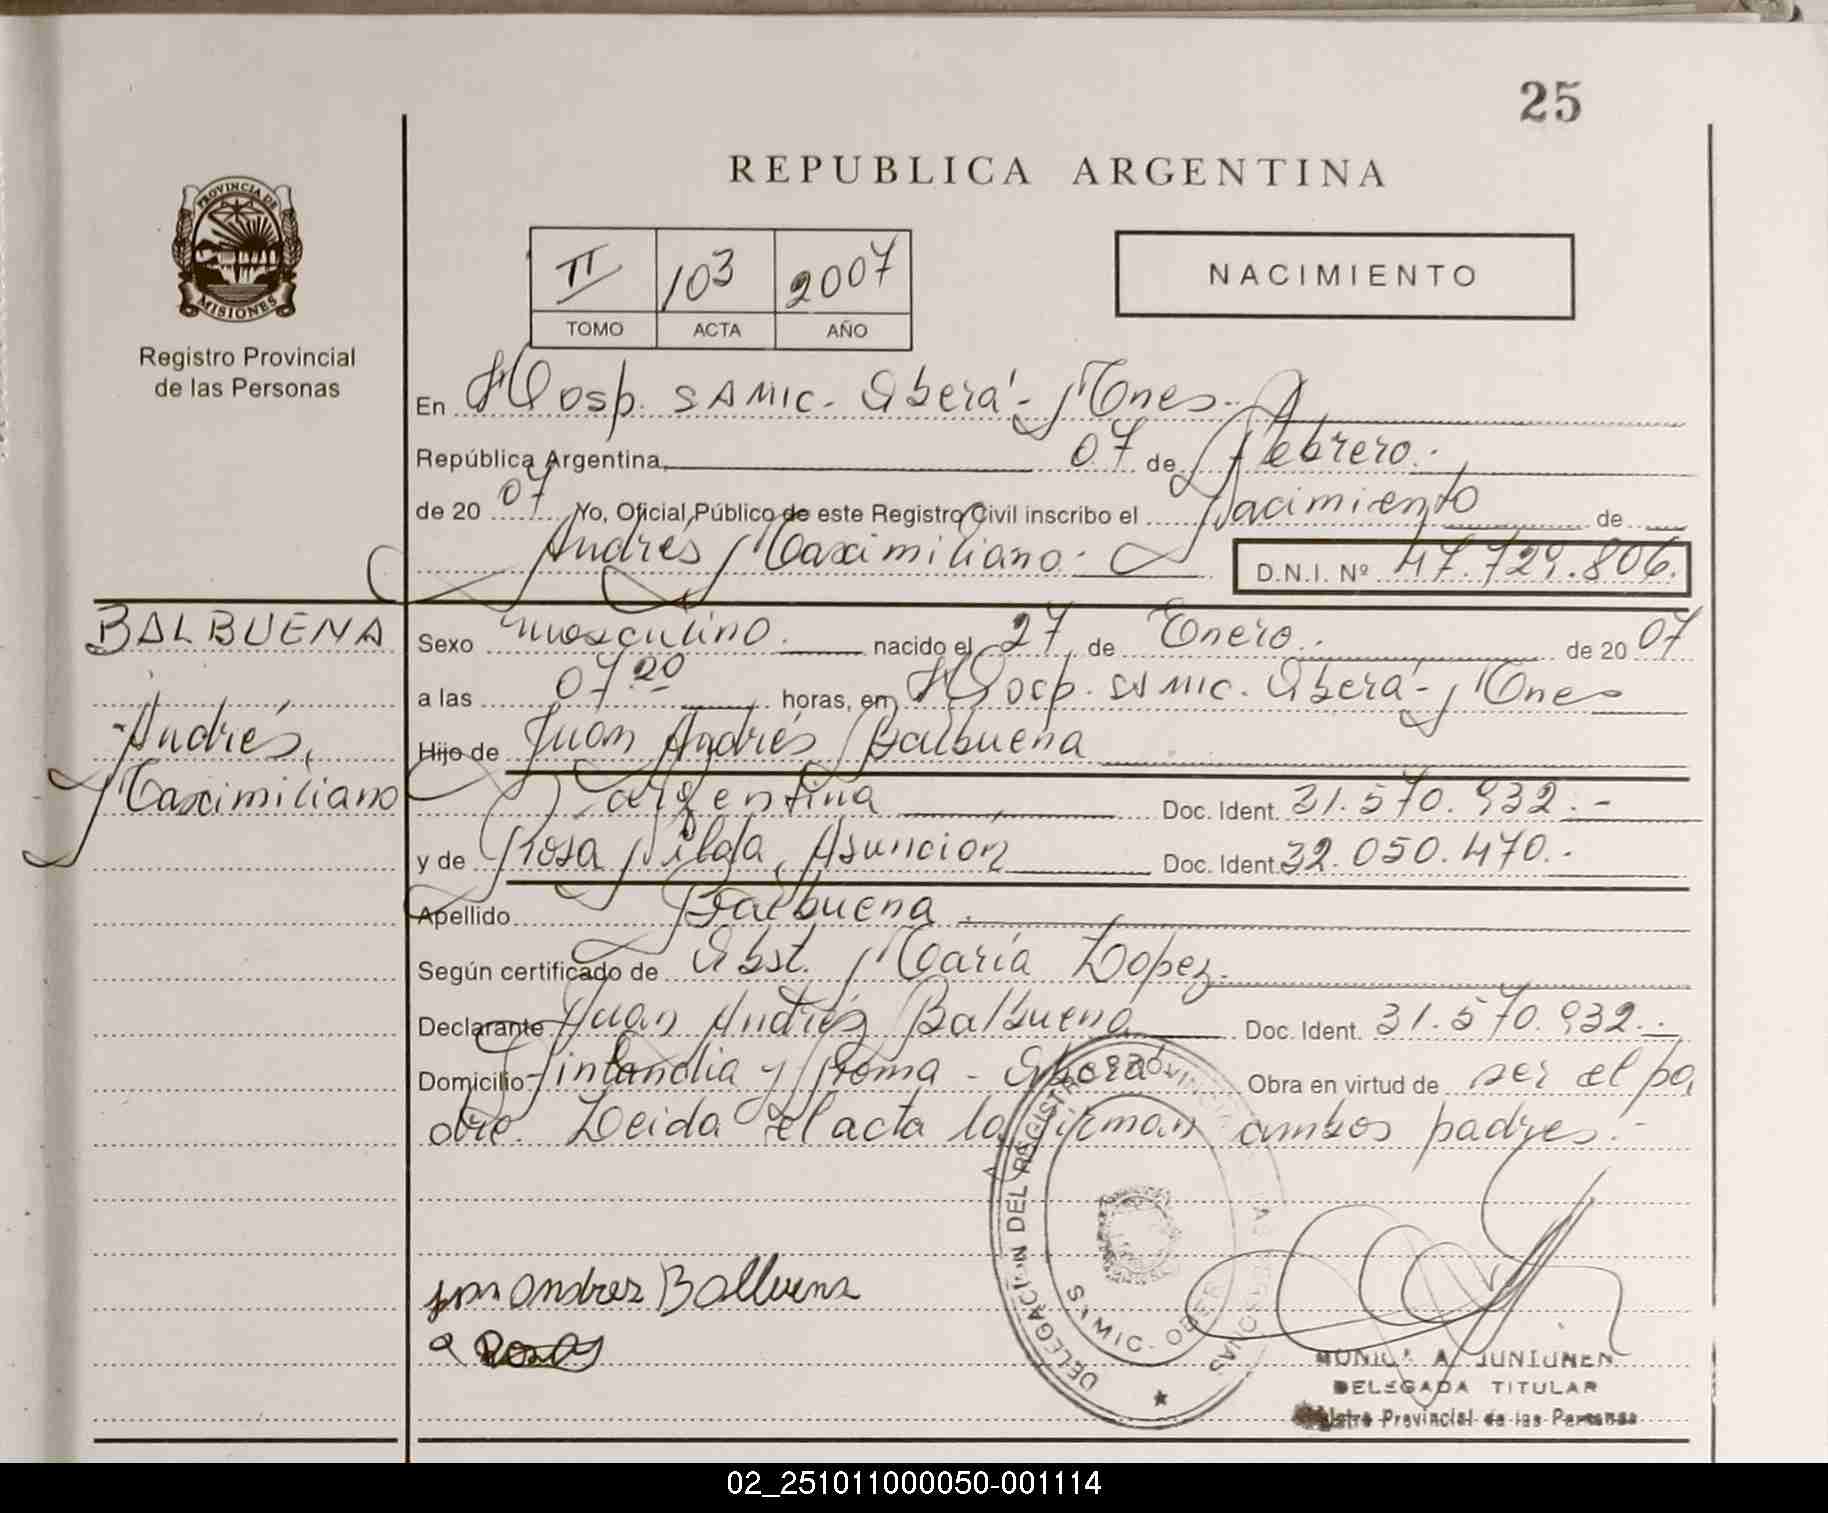 25
REPUBLICA ARGENTINA
PROVINCIA DE
MISIONES
Registro Provincial
de las Personas
II 103 2007
TOMO ACTA AÑO
NACIMIENTO
En Hosp. SAMIC. Oberá - Mnes.
República Argentina, 07 de Febrero.
de 20 07 Yo, Oficial Público de este Registro Civil inscribo el Nacimiento de
Andrés Maximiliano. D.N.I. Nº 47.729.806.
BALBUENA
Andrés,
Maximiliano
Sexo masculino. nacido el 27 de Enero. de 20 07
a las 07 20 horas, en Hosp. SAMIC. Oberá - Mnes
Hijo de Juan Andrés Balbuena
argentina Doc. Ident. 31.570.932.-
y de Rosa Asunción Doc. Ident. 32.050.470.-
Apellido Balbuena.
Según certificado de Obst. María Lopez.
Declarante Juan Andrés Balbuena Doc. Ident. 31.570.932.-
Domicilio Finlandia y Roma - Oberá Obra en virtud de ser el pa
dre. Leida el acta la firman ambos padres.-
DELEGACION DEL REGISTRO PROVINCIAL
SAMIC. OBERA
Balbuena
MONICA A. JUNIUNEN
DELEGADA TITULAR
Registro Provincial de las Personas
02_251011000050-001114